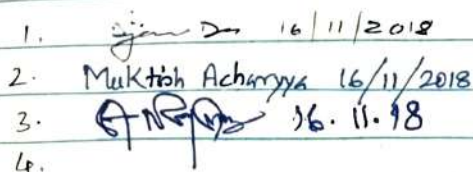 1. Das 16/11/2018
2. Muktish Acharyya 16/11/2018
3. 16.11.18
4.